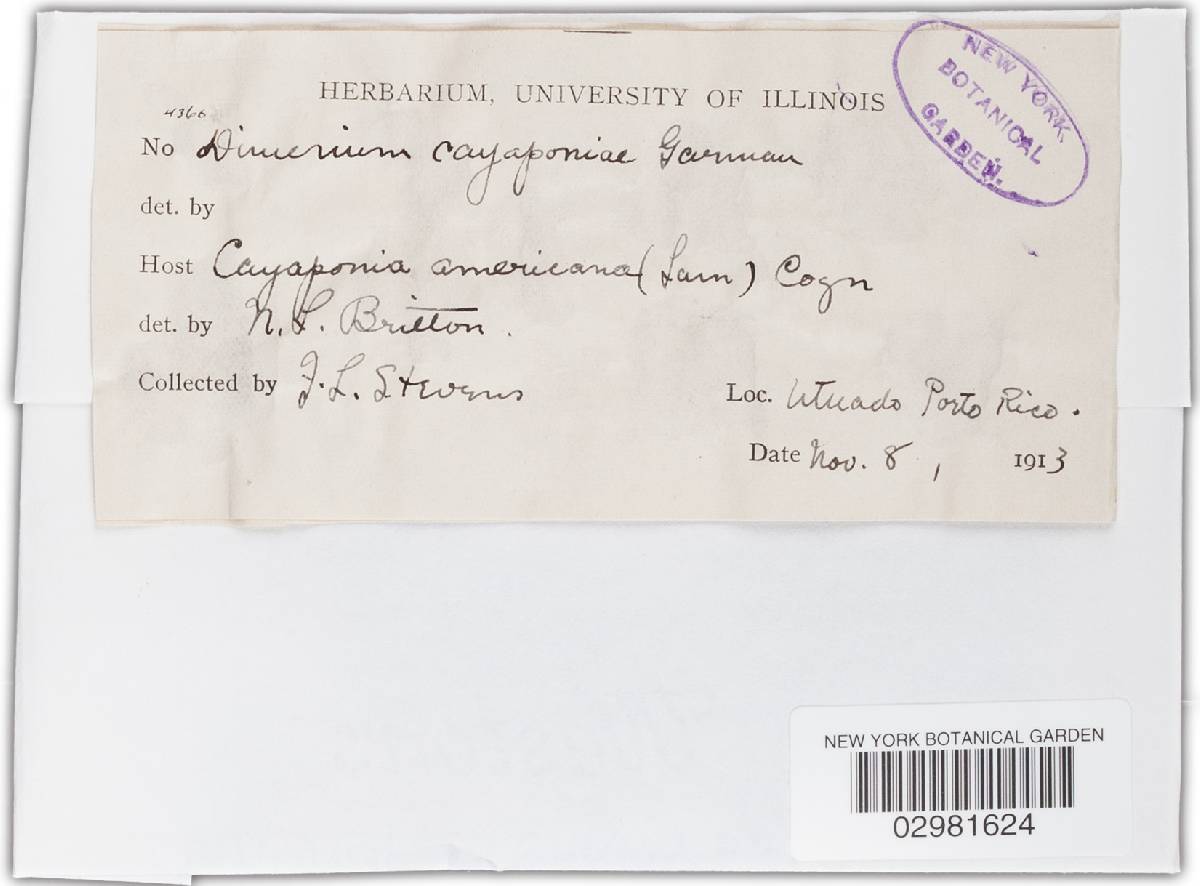 HERBARIUM, UNIVERSITY OF ILLINOIS
NEW YORK
BOTANICAL
GARDEN.
4366
No Dimerium cayaponiae Garman
det. by
Host Cayaponia americana (Lam) Cogn
det. by N. L. Britton.
Collected by F. L. Stevens
Loc. Utuado Porto Rico.
Date Nov. 8, 1913
NEW YORK BOTANICAL GARDEN
02981624